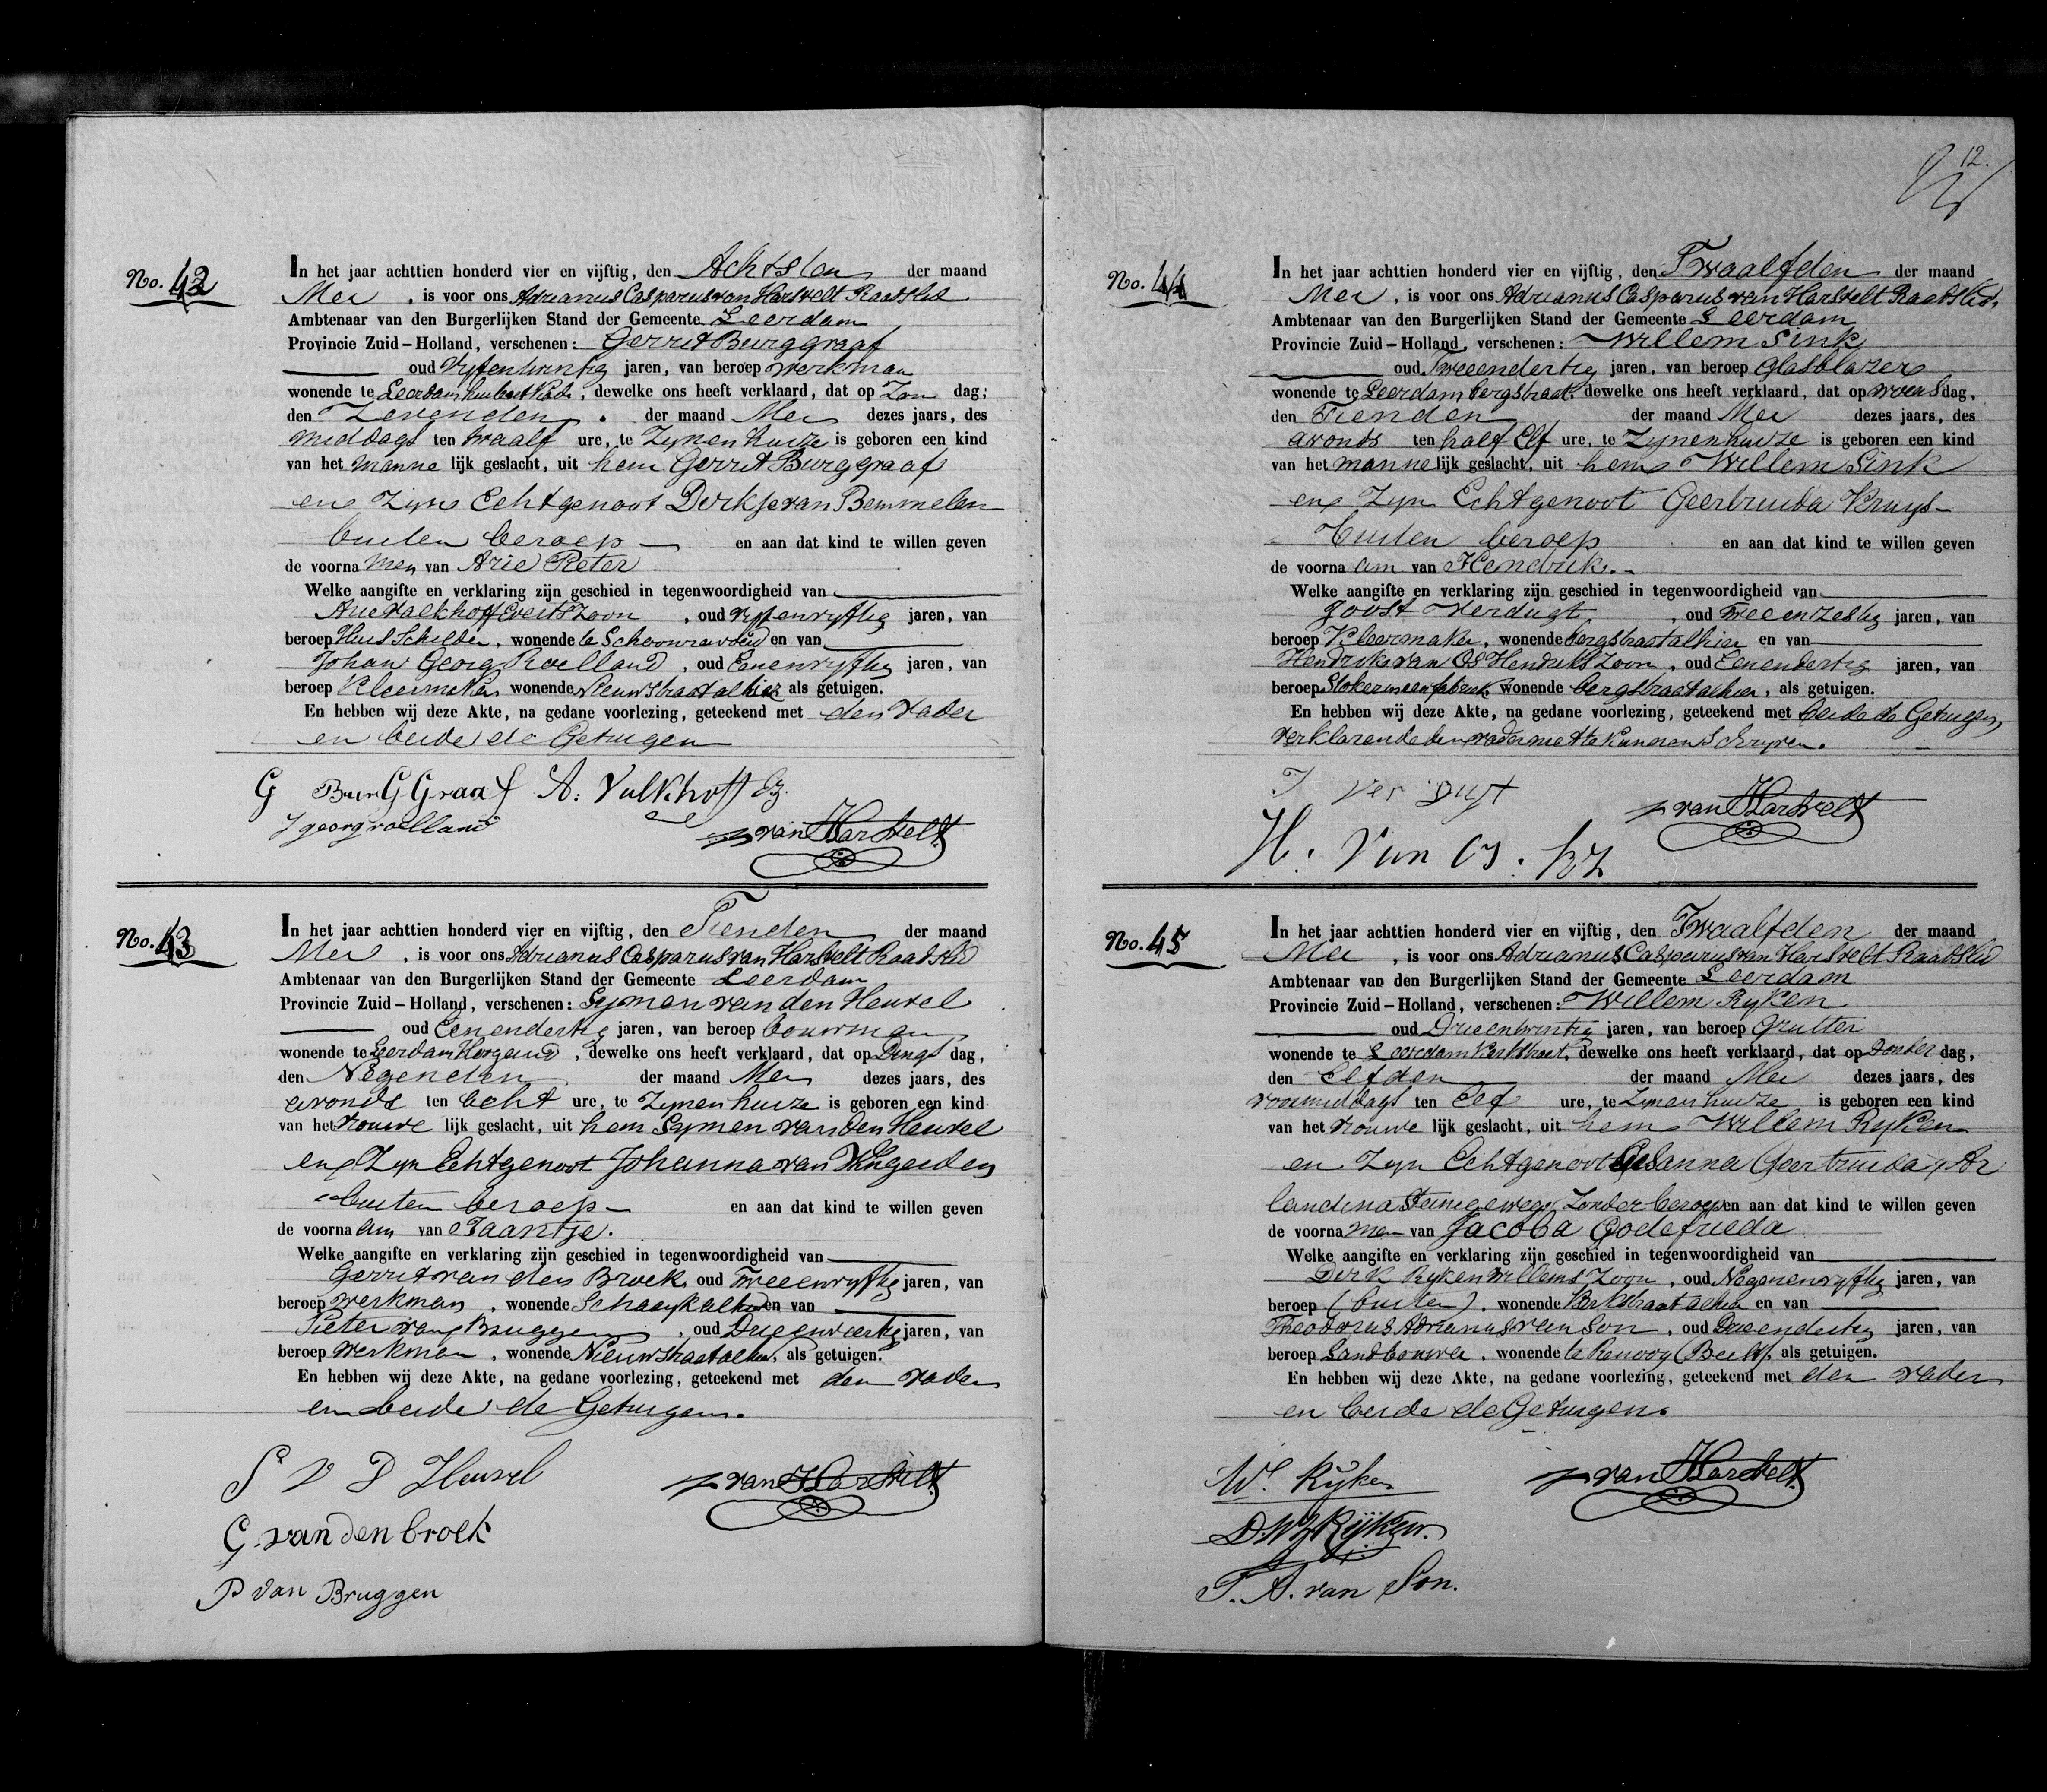 No. 42
In het jaar achttien honderd vier en vijftig, den Achtsten der maand
Mei, is voor ons Adrianus Casparus van Harstelt Raadslid
Ambtenaar van den Burgerlijken Stand der Gemeente Leerdam
Provincie Zuid-Holland, verschenen: Gerrit Burggraaf
oud Vyfentwintig jaren, van beroep werkman
wonende te Leerdam, dewelke ons heeft verklaard, dat op Zon dag;
den Zevenden der maand Mei dezes jaars, des
middags ten twaalf ure, te Zynen huize is geboren een kind
van het manne lijk geslacht, uit hem Gerrit Burggraaf
en Zyne Echtgenoot Dirkje van Bemmelen
buiten beroep en aan dat kind te willen geven
de voorna men van Arie Pieter
Welke aangifte en verklaring zijn geschied in tegenwoordigheid van
Arie Valkhoff Evertszoon, oud vyfenvyftig jaren, van
beroep Huis Schilder, wonende te Schoonrewoerd en van
Johan Georg Roelland, oud Eenenvyftig jaren, van
beroep Kleermaker wonende Nieuwstraat alhier als getuigen.
En hebben wij deze Akte, na gedane voorlezing, geteekend met den vader
en beide de Getuigen
G BurGGraaf A: Valkhoff Ez.
J georg roelland
van Harstelt
No. 43
In het jaar achttien honderd vier en vijftig, den Tienden der maand
Mei, is voor ons Adrianus Casparus van Harstelt Raadslid
Ambtenaar van den Burgerlijken Stand der Gemeente Leerdam
Provincie Zuid-Holland, verschenen: Seymen van den Heuvel
oud Eenendertig jaren, van beroep bouwman
wonende te Leerdam, dewelke ons heeft verklaard, dat op Dings dag,
den Negenden der maand Mei dezes jaars, des
avonds ten acht ure, te Zynen huize is geboren een kind
van het vrouwe lijk geslacht, uit hem Seymen van den Heuvel
en Zyn Echtgenoot Johanna van Wingerden
buiten beroep en aan dat kind te willen geven
de voorna am van Jaantje.
Welke aangifte en verklaring zijn geschied in tegenwoordigheid van
Gerrit van den Broek oud Tweeenvyftig jaren, van
beroep werkman, wonende Schaaykalhier en van
Pieter van Bruggen, oud Drieenveertig jaren, van
beroep werkman, wonende Nieuwstraat alhier, als getuigen.
En hebben wij deze Akte, na gedane voorlezing, geteekend met den vader
en beide de Getuigen.
S V D Heuvel
van Harstelt
G. van den broek
P van Bruggen
12.
No. 44
In het jaar achttien honderd vier en vijftig, den Twaalfden der maand
Mei, is voor ons Adrianus Casparus van Harstelt Raadslid,
Ambtenaar van den Burgerlijken Stand der Gemeente Leerdam
Provincie Zuid-Holland, verschenen: Willem Sink
oud Tweeendertig jaren, van beroep Glasblazer
wonende te Leerdam bergstraat, dewelke ons heeft verklaard, dat op woensdag,
den Tienden der maand Mei dezes jaars, des
avonds ten half Elf ure, te Zynen huize is geboren een kind
van het manne lijk geslacht, uit hem Willem Sink
en Zyn Echtgenoot Geertruida Kruys
buiten beroep en aan dat kind te willen geven
de voorna am van Hendrik.
Welke aangifte en verklaring zijn geschied in tegenwoordigheid van
Joost Verduyt, oud Tweeenzestig jaren, van
beroep Kleermaker, wonende bergstraat alhier en van
Hendrik van Os Hendrikszoon, oud Eenendertig jaren, van
beroep Stoker in een fabriek, wonende bergstraat alhier, als getuigen.
En hebben wij deze Akte, na gedane voorlezing, geteekend met beide de Getuigen,
verklarende den vader niet te kunnen Schryven.
J Ver Duyt
van Harstelt
H. Van Os. hz
No. 45
In het jaar achttien honderd vier en vijftig, den Twaalfden der maand
Mei, is voor ons Adrianus Casparus van Harstelt Raadslid
Ambtenaar van den Burgerlijken Stand der Gemeente Leerdam
Provincie Zuid-Holland, verschenen: Willem Ryken
oud Drieentwintig jaren, van beroep Grutter
wonende te Leerdam Kerkstraat, dewelke ons heeft verklaard, dat op Donder dag,
den Elfden der maand Mei dezes jaars, des
voormiddags ten Elf ure, te Zynen huize is geboren een kind
van het vrouwe lijk geslacht, uit hem Willem Ryken
en Zyn Echtgenoot Susanna Geertruida Ar
landina Zonder beroep en aan dat kind te willen geven
de voorna men van Jacoba Godefrieda
Welke aangifte en verklaring zijn geschied in tegenwoordigheid van
Derk Ryken Willems Zoon, oud Negenenvyftig jaren, van
beroep (buiten), wonende Kerkstraat alhier en van
Theodorus Adrianus van Son, oud Drieendertig jaren, van
beroep Landbouwer, wonende te Renooy (Beesd), als getuigen.
En hebben wij deze Akte, na gedane voorlezing, geteekend met den vader
en beide de Getuigen.
W. Ryken
van Harstelt
D. Wz Rijken.
T. A. van Son.